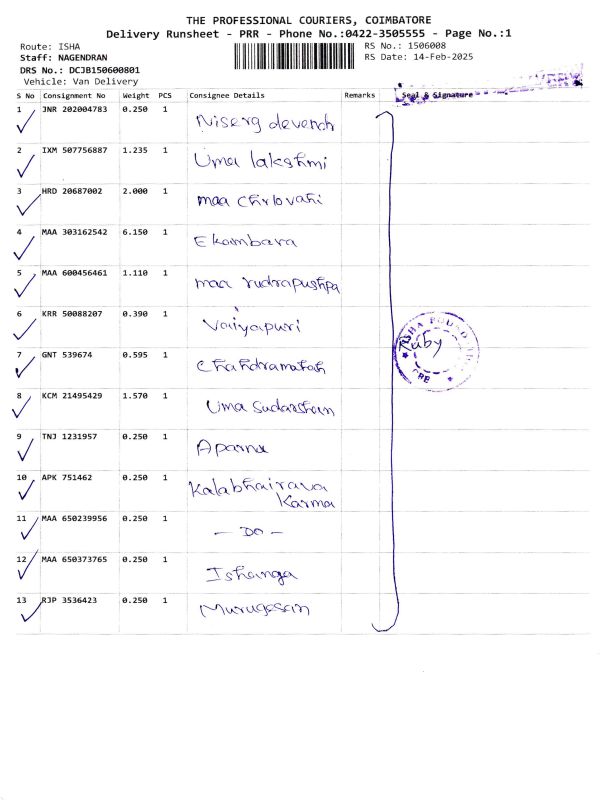 THE PROFESSIONAL COURIERS, COIMBATORE
Delivery Runsheet - PRR - Phone No.:0422-3505555 - Page No.:1
Route: ISHA RS No.: 1506008
Staff: NAGENDRAN RS Date: 14-Feb-2025
DRS No.: DCJB150600801
Vehicle: Van Delivery
S No Consignment No Weight PCS Consignee Details Remarks Seal & Signature
1 JNR 202004783 0.250 1 Niserg devendh
2 IXM 507756887 1.235 1 Uma lakshmi
3 HRD 20687002 2.000 1 maa
4 MAA 303162542 6.150 1 Ekambara
5 MAA 600456461 1.110 1 maa rudrapushpa
6 KRR 50088207 0.390 1 Vaiyapuri
7 GNT 539674 0.595 1 Chandramatah
Ruby
8 KCM 21495429 1.570 1 Uma Sudarshan
9 TNJ 1231957 0.250 1 Aparna
10 APK 751462 0.250 1 Kalabhairava
Karma
11 MAA 650239956 0.250 1 - DO -
12 MAA 650373765 0.250 1 Ishanga
13 RJP 3536423 0.250 1 Murugesan